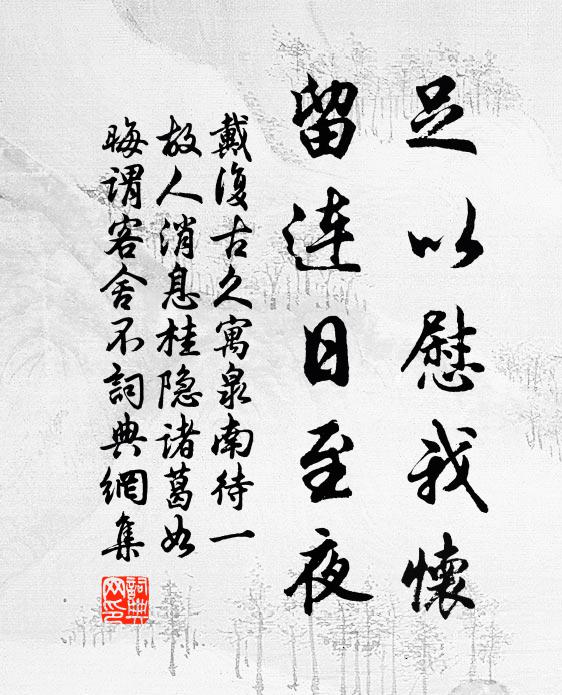 足以慰我懷
留連日至夜
戴復古久寓泉南待一
故人消息桂隐諸葛如
晦谓客舍不詞典網集
詞典
网印